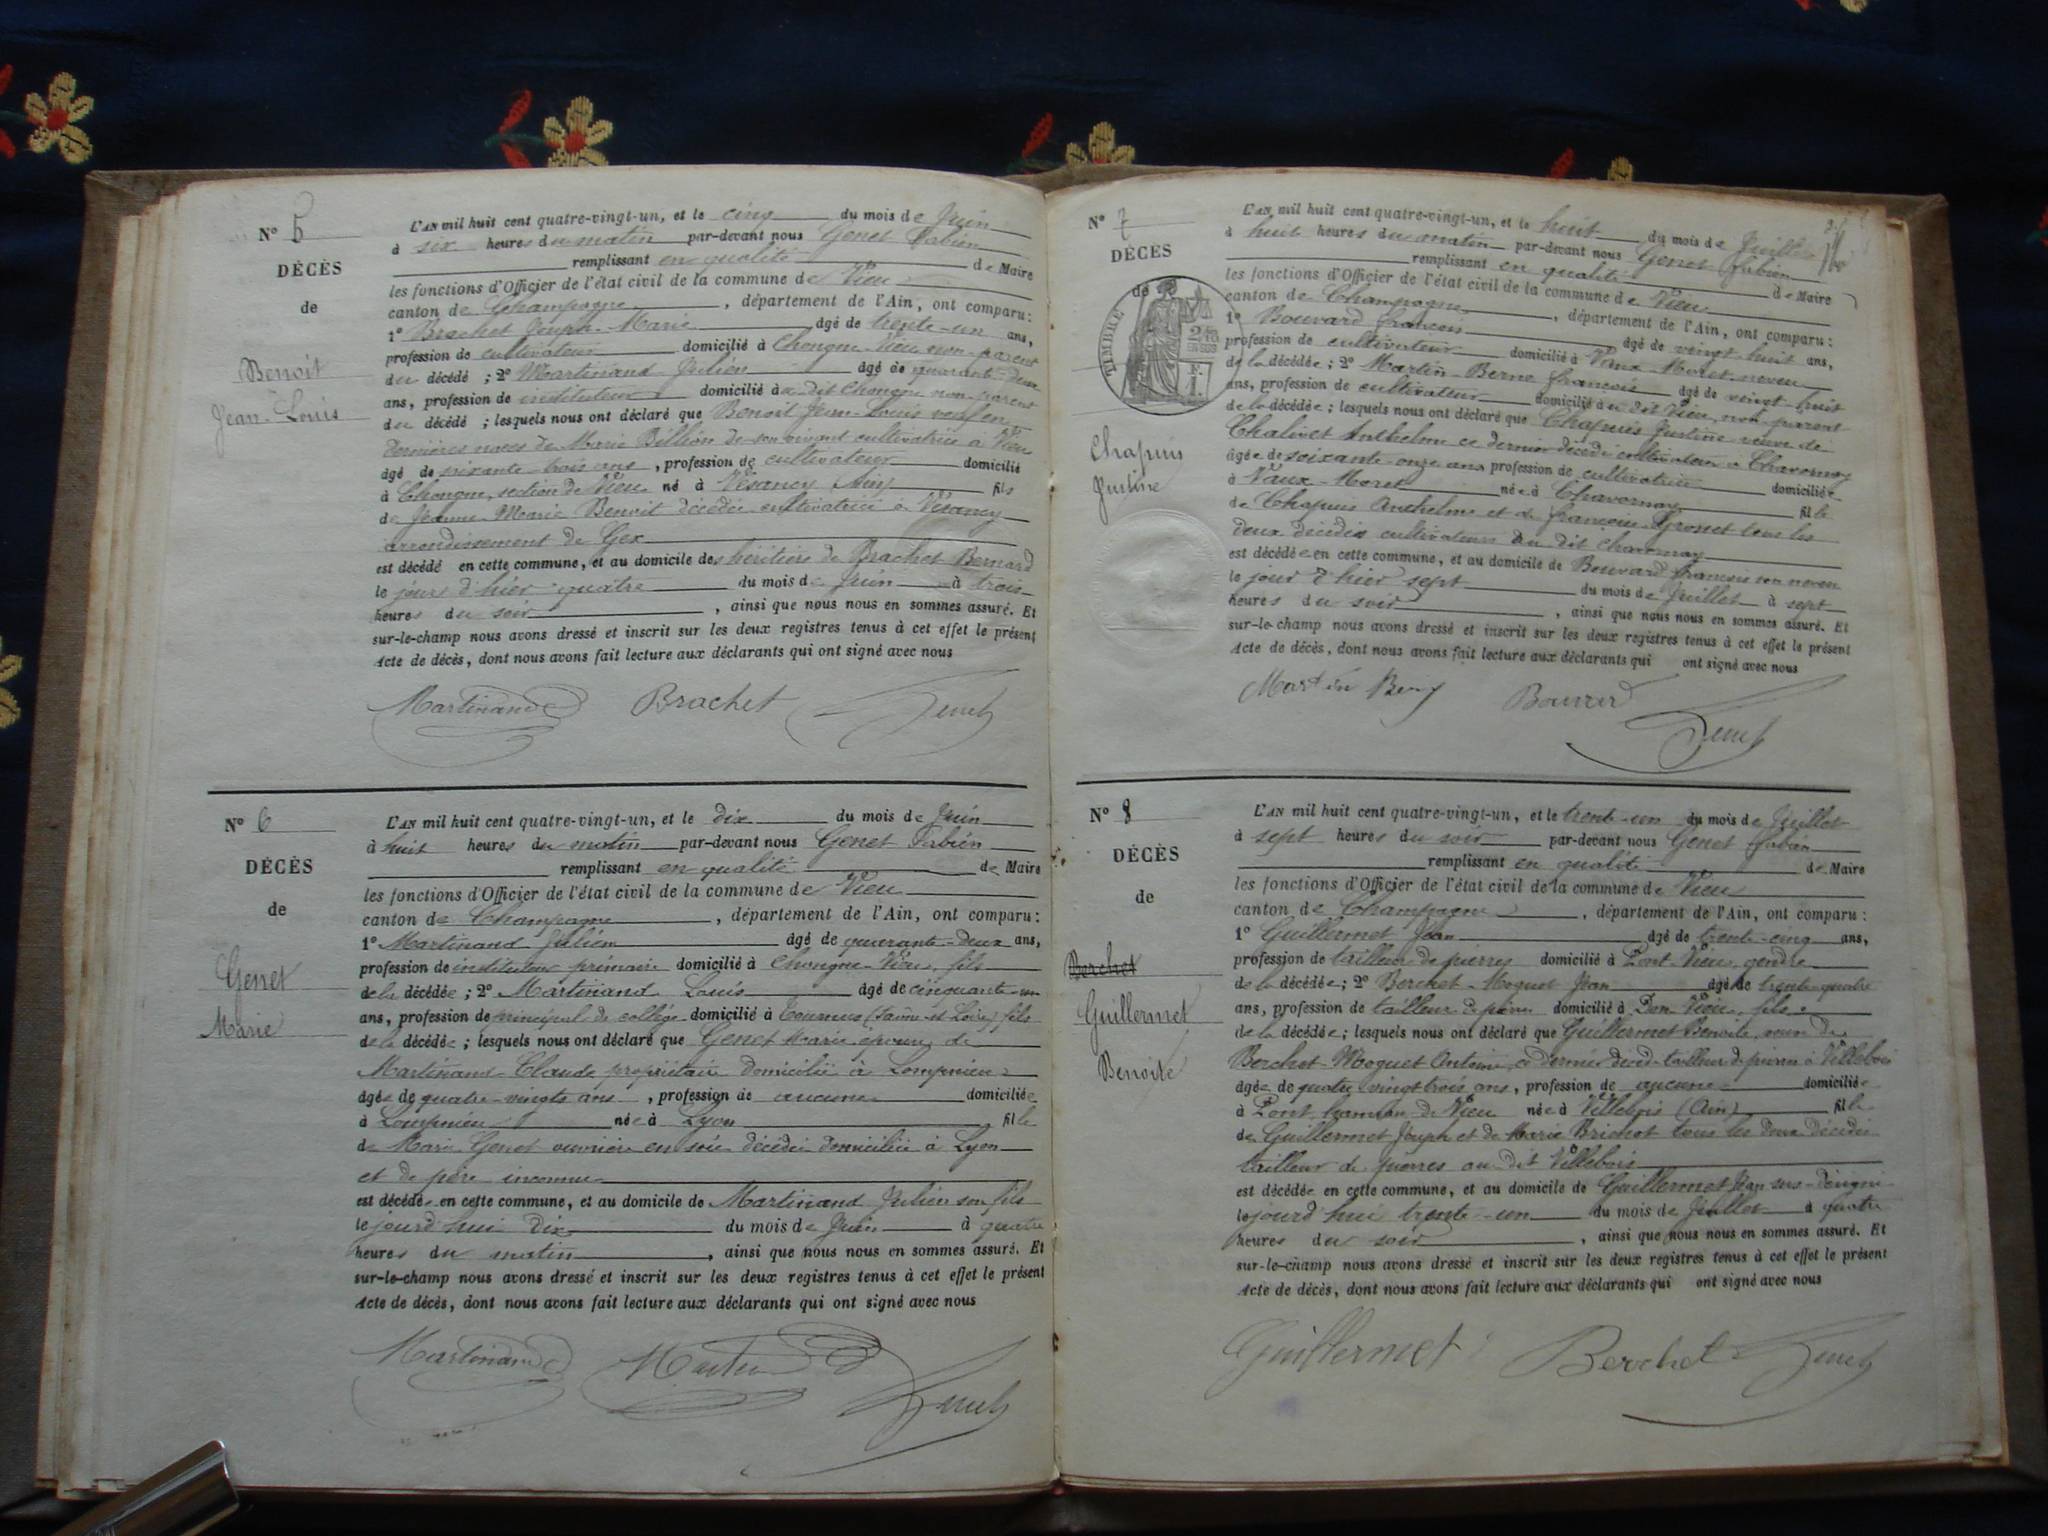 N° 5
DÉCÈS
de
Benoit
Jean-Louis
L'AN mil huit cent quatre-vingt-un, et le cinq du mois de Juin
à six heures du matin par-devant nous Genet Fabien
remplissant en qualité de Maire
les fonctions d'Officier de l'état civil de la commune de Vieu
canton de Champagne, département de l'Ain, ont comparu :
1° Brachet Joseph-Marie âgé de trente-un ans,
profession de cultivateur domicilié à Chongne-Vieu non-parent
du décédé ; 2° Martinand Julien âgé de quarante-deux
ans, profession de instituteur domicilié au dit Chongne non-parent
du décédé ; lesquels nous ont déclaré que Benoit Jean-Louis veuf en
dernières noces de Marie Billion de son vivant cultivatrice à Vieu
âgé de soixante-trois ans, profession de cultivateur domicilié
à Chongne, section de Vieu né à Vésancy (Ain) fils
de Jeanne-Marie Benoit décédée cultivatrice à Vésancy
arrondissement de Gex
est décédé en cette commune, et au domicile des héritiers de Brachet Bernard
le jour d'hier quatre du mois de Juin à trois
heures du soir, ainsi que nous nous en sommes assuré. Et
sur-le-champ nous avons dressé et inscrit sur les deux registres tenus à cet effet le présent
Acte de décès, dont nous avons fait lecture aux déclarants qui ont signé avec nous
Martinand Brachet Genet
N° 6
DÉCÈS
de
Genet
Marie
L'AN mil huit cent quatre-vingt-un, et le dix du mois de Juin
à huit heures du matin par-devant nous Genet Fabien
remplissant en qualité de Maire
les fonctions d'Officier de l'état civil de la commune de Vieu
canton de Champagne, département de l'Ain, ont comparu :
1° Martinand Julien âgé de quarante-deux ans,
profession de instituteur primaire domicilié à Chongne-Vieu, fils
de la décédée ; 2° Martinand Louis âgé de cinquante-un
ans, profession de principal de collège domicilié à Tournus (Saône-et-Loire) fils
de la décédée ; lesquels nous ont déclaré que Genet Marie épouse de
Martinand-Claude propriétaire domiciliée à Lompnieu
âgée de quatre-vingts ans, profession de aucune domiciliée
à Lompnieu née à Lyon fille
de Marie Genet ouvrière en soie décédée domiciliée à Lyon
et de père inconnu
est décédée en cette commune, et au domicile de Martinand Julien son fils
le jourd'hui dix du mois de Juin à quatre
heures du matin, ainsi que nous nous en sommes assuré. Et
sur-le-champ nous avons dressé et inscrit sur les deux registres tenus à cet effet le présent
Acte de décès, dont nous avons fait lecture aux déclarants qui ont signé avec nous
Martinand Martinand Genet
N° 7
DÉCÈS
de
TIMBRE
Chapuis
Justine
L'AN mil huit cent quatre-vingt-un, et le huit du mois de Juillet
à huit heures du matin par-devant nous Genet Fabien
remplissant en qualité de Maire
les fonctions d'Officier de l'état civil de la commune de Vieu
canton de Champagne, département de l'Ain, ont comparu :
1° Bouvard François âgé de vingt huit ans,
profession de cultivateur domicilié à Vaux-Moret neveu
de la décédée ; 2° Martin-Berne François âgé de vingt-huit
ans, profession de cultivateur domicilié au dit Vieu, non-parent
de la décédée ; lesquels nous ont déclaré que Chapuis Justine veuve de
Chalivet Anthelme ce dernier décédé cultivateur à Chavornay
âgée de soixante-onze ans profession de cultivatrice domiciliée
à Vaux-Moret née à Chavornay fille
de Chapuis Anthelme et de Françoise Gronet tous les
deux décédés cultivateurs au dit Chavornay
est décédée en cette commune, et au domicile de Bouvard François son neveu
le jour d'hier sept du mois de Juillet à sept
heures du soir, ainsi que nous nous en sommes assuré. Et
sur-le-champ nous avons dressé et inscrit sur les deux registres tenus à cet effet le présent
Acte de décès, dont nous avons fait lecture aux déclarants qui ont signé avec nous
Martin Bouvard Genet
N° 8
DÉCÈS
de
Berchet
Guillermet
Benoite
L'AN mil huit cent quatre-vingt-un, et le trente-un du mois de Juillet
à sept heures du soir par-devant nous Genet Fabien
remplissant en qualité de Maire
les fonctions d'Officier de l'état civil de la commune de Vieu
canton de Champagne, département de l'Ain, ont comparu :
1° Guillermet Jean âgé de trente-cinq ans,
profession de tailleur de pierres domicilié à Pont-Vieu, gendre
de la décédée ; 2° Berchet-Moguet Jean âgé de trente-quatre
ans, profession de tailleur de pierres domicilié à Pont Vieu, fils
de la décédée ; lesquels nous ont déclaré que Guillermet Benoite, veuve de
Berchet-Moguet Antoine, ce dernier décédé tailleur de pierres à Villebois
âgée de quatre-vingt-trois ans, profession de aucune domiciliée
à Pont, hameau de Vieu née à Villebois (Ain) fille
de Guillermet Joseph et de Marie Brichot tous les deux décédés
tailleur de pierres au dit Villebois
est décédée en cette commune, et au domicile de Guillermet Jean sus-désigné
le jourd'hui trente-un du mois de Juillet à quatre
heures du soir, ainsi que nous nous en sommes assuré. Et
sur-le-champ nous avons dressé et inscrit sur les deux registres tenus à cet effet le présent
Acte de décès, dont nous avons fait lecture aux déclarants qui ont signé avec nous
Guillermet Berchet Genet